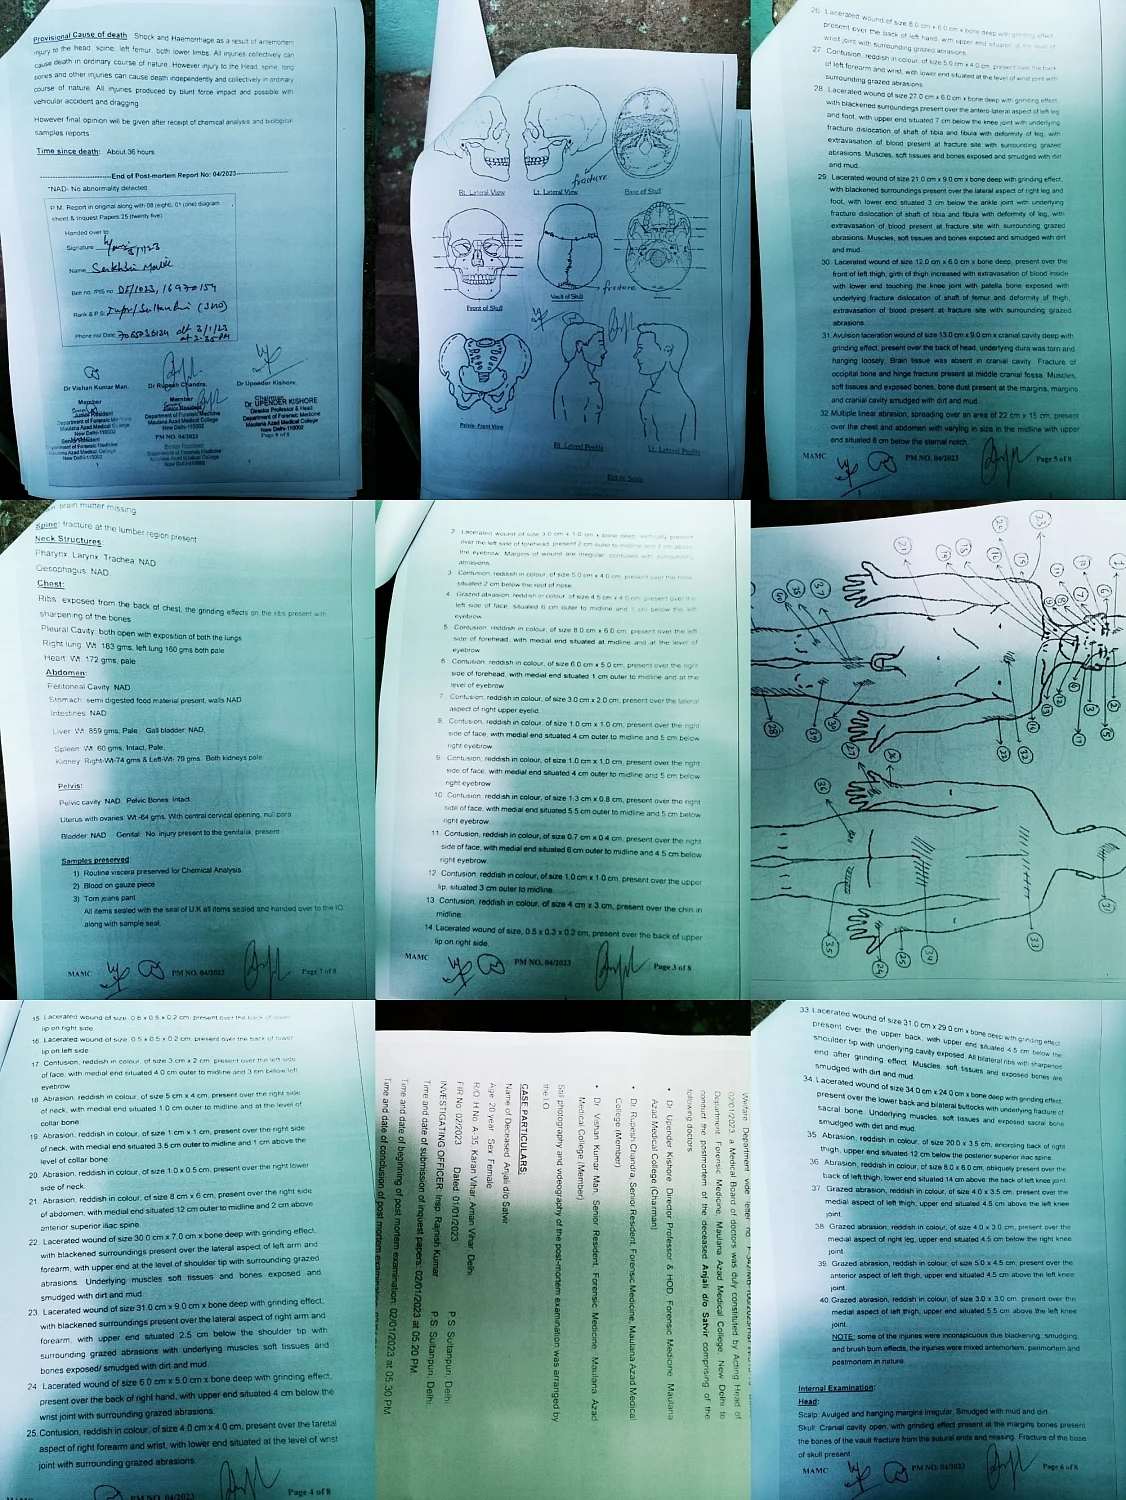 Provisional Cause of death Shock and Haemorrhage as a result of antemortem
injury to the head, spine, left femur, both lower limbs. All injuries collectively can
cause death in ordinary course of nature. However injury to the Head, spine, long
bones and other injuries can cause death independently and collectively in ordinary
course of nature. All injuries produced by blunt force impact and possible with
vehicular accident and dragging
However final opinion will be given after receipt of chemical analysis and biological
samples reports.
Time since death: About 36 hours.
End of Post-mortem Report No: 04/2023
*NAD- No abnormality detected
P.M. Report in original along with 08 (eight), 01 (one) diagram
sheet & Inquest Papers 25 (twenty five)
Handed over to
Signature
Name
Belt no. /PIS no
Rank & P.S.
Phone no/ Date
Dr Vishan Kumar Man.
Member
Dr Rupesh Chandra.
Member
Dr Upender Kishore.
Chairman
Dr. UPENDER KISHORE
Director Professor & Head
Department of Forensic Medicine
Maulana Azad Medical College
New Delhi-110002
PM NO. 04/2023
Page 8 of 8
Rt. Lateral View
Lt. Lateral View
fracture
Base of Skull
Front of Skull
Vault of Skull
Pelvis- Front View
Rt. Lateral Profile
Lt. Lateral Profile
Not to Scale
26. Lacerated wound of size 8.0 cm x 6.0 cm x bone deep with grinding effect,
present over the back of left hand, with upper end situated at the level of
wrist joint with surrounding grazed abrasions.
27. Contusion, reddish in colour, of size 5.0 cm x 4.0 cm, present over the back
of left forearm and wrist, with lower end situated at the level of wrist joint with
surrounding grazed abrasions.
28. Lacerated wound of size 27.0 cm x 6.0 cm x bone deep with grinding effect,
with blackened surroundings present over the antero-lateral aspect of left leg
and foot, with upper end situated 7 cm below the knee joint with underlying
fracture dislocation of shaft of tibia and fibula with deformity of leg, with
extravasation of blood present at fracture site with surrounding grazed
abrasions. Muscles, soft tissues and bones exposed and smudged with dirt
and mud.
29. Lacerated wound of size 21.0 cm x 9.0 cm x bone deep with grinding effect,
with blackened surroundings present over the lateral aspect of right leg and
foot, with lower end situated 3 cm below the ankle joint with underlying
fracture dislocation of shaft of tibia and fibula with deformity of leg, with
extravasation of blood present at fracture site with surrounding grazed
abrasions. Muscles, soft tissues and bones exposed and smudged with dirt
and mud.
30. Lacerated wound of size 12.0 cm x 6.0 cm x bone deep, present over the
front of left thigh, girth of thigh increased with extravasation of blood inside
with lower end touching the knee joint with patella bone exposed with
underlying fracture dislocation of shaft of femur and deformity of thigh,
extravasation of blood present at fracture site with surrounding grazed
abrasions.
31. Avulsion laceration wound of size 13.0 cm x 9.0 cm x cranial cavity deep with
grinding effect, present over the back of head, underlying dura was torn and
hanging loosely. Brain tissue was absent in cranial cavity. Fracture of
occipital bone and hinge fracture present at middle cranial fossa. Muscles,
soft tissues and exposed bones, bone dust present at the margins, margins
and cranial cavity smudged with dirt and mud.
32. Multiple linear abrasion, spreading over an area of 22 cm x 15 cm, present
over the chest and abdomen with varying in size in the midline with upper
end situated 8 cm below the sternal notch.
MAMC PM NO. 04/2023 Page 5 of 8
brain matter missing
Spine: fracture at the lumber region present
Neck Structures:
Pharynx, Larynx, Trachea: NAD
Oesophagus: NAD
Chest:
Ribs: exposed from the back of chest, the grinding effects on the ribs present with
sharpening of the bones
Pleural Cavity: both open with exposition of both the lungs
Right lung: Wt. 183 gms, left lung 160 gms both pale
Heart: Wt. 172 gms, pale
Abdomen:
Peritoneal Cavity: NAD
Stomach: semi digested food material present, walls NAD
Intestines: NAD
Liver: Wt. 859 gms, Pale. Gall bladder: NAD.
Spleen: Wt. 60 gms. Intact, Pale.
Kidney: Right-Wt-74 gms & Left-Wt- 79 gms. Both kidneys pale
Pelvis:
Pelvic cavity: NAD. Pelvic Bones: Intact.
Uterus with ovaries: Wt-64 gms. With central cervical opening, nullipara
Bladder: NAD Genital: No injury present to the genitalia present
Samples preserved
1) Routine viscera preserved for Chemical Analysis.
2) Blood on gauze piece
3) Torn jeans pant
All items sealed with the seal of U.K all items sealed and handed over to the IO
along with sample seal.
MAMC PM NO. 04/2023 Page 7 of 8
2. Lacerated wound of size 3.0 cm x 1.0 cm x bone deep, vertically present
over the left side of forehead, present 2 cm outer to midline and 2 cm above
the eyebrow. Margins of wound are irregular, contused with surrounding
abrasions.
3. Contusion, reddish in colour, of size 5.0 cm x 4.0 cm, present over the nose,
situated 2 cm below the root of nose.
4. Grazed abrasion, reddish in colour, of size 4.5 cm x
left side of face, situated 6 cm outer to midline and below the left
eyebrow
5. Contusion, reddish in colour, of size 8.0 cm x 6.0 cm, present over the left
side of forehead, with medial end situated at midline and at the level of
eyebrow
6. Contusion, reddish in colour, of size 6.0 cm x 5.0 cm, present over the right
side of forehead, with medial end situated 1 cm outer to midline and at the
level of eyebrow
7. Contusion, reddish in colour, of size 3.0 cm x 2.0 cm, present over the lateral
aspect of right upper eyelid.
8. Contusion, reddish in colour, of size 1.0 cm x 1.0 cm, present over the right
side of face, with medial end situated 4 cm outer to midline and 5 cm below
right eyebrow
9. Contusion, reddish in colour, of size 1.0 cm x 1.0 cm, present over the right
side of face, with medial end situated 4 cm outer to midline and 5 cm below
right eyebrow
10. Contusion, reddish in colour, of size 1.3 cm x 0.8 cm, present over the right
side of face, with medial end situated 5.5 cm outer to midline and 5 cm below
right eyebrow.
11. Contusion, reddish in colour, of size 0.7 cm x 0.4 cm, present over the right
side of face, with medial end situated 6 cm outer to midline and 4.5 cm below
right eyebrow
12. Contusion, reddish in colour, of size 1.0 cm x 1.0 cm, present over the upper
lip, situated 3 cm outer to midline.
13. Contusion, reddish in colour, of size 4 cm x 3 cm, present over the chin in
midline.
14. Lacerated wound of size, 0.5 x 0.3 x 0.2 cm, present over the back of upper
lip on right side.
MAMC PM NO. 04/2023 Page 3 of 8
15. Lacerated wound of size, 0.8 x 0.5 x 0.2 cm, present over the back of lower
lip on right side
16. Lacerated wound of size, 0.5 x 0.5 x 0.2 cm, present over the back of lower
lip on left side
17. Contusion, reddish in colour, of size 3 cm x 2 cm, present over the left side
of face, with medial end situated 4.0 cm outer to midline and 3 cm below left
eyebrow
18. Abrasion, reddish in colour, of size 5 cm x 4 cm, present over the right side
of neck, with medial end situated 1.0 cm outer to midline and at the level of
collar bone
19. Abrasion, reddish in colour, of size 1 cm x 1 cm, present over the right side
of neck, with medial end situated 3.5 cm outer to midline and 1 cm above the
level of collar bone.
20. Abrasion, reddish in colour, of size 1.0 x 0.5 cm, present over the right lower
side of neck.
21. Abrasion, reddish in colour, of size 8 cm x 6 cm, present over the right side
of abdomen, with medial end situated 12 cm outer to midline and 2 cm above
anterior superior iliac spine.
22. Lacerated wound of size 30.0 cm x 7.0 cm x bone deep with grinding effect,
with blackened surroundings present over the lateral aspect of left arm and
forearm, with upper end at the level of shoulder tip with surrounding grazed
abrasions. Underlying muscles soft tissues and bones exposed and
smudged with dirt and mud.
23. Lacerated wound of size 31.0 cm x 9.0 cm x bone deep with grinding effect,
with blackened surroundings present over the lateral aspect of right arm and
forearm, with upper end situated 2.5 cm below the shoulder tip with
surrounding grazed abrasions with underlying muscles soft tissues and
bones exposed/ smudged with dirt and mud.
24. Lacerated wound of size 6.0 cm x 5.0 cm x bone deep with grinding effect,
present over the back of right hand, with upper end situated 4 cm below the
wrist joint with surrounding grazed abrasions.
25. Contusion, reddish in colour, of size 4.0 cm x 4.0 cm, present over the laretal
aspect of right forearm and wrist, with lower end situated at the level of wrist
joint with surrounding grazed abrasions.
MAMC PM NO. 04/2023 Page 4 of 8
02/01/2023, a Medical Board of doctors was duly constituted by Acting Head of
Department Forensic Medicine, Maulana Azad Medical College New Delhi to
conduct the postmortem of the deceased Anjali d/o Satvir comprising of the
following doctors
• Dr. Upender Kishore, Director Professor & HOD, Forensic Medicine, Maulana
Azad Medical College (Chairman)
• Dr. Rupesh Chandra, Senior Resident, Forensic Medicine, Maulana Azad Medical
College (Member)
• Dr. Vishan Kumar Man, Senior Resident, Forensic Medicine, Maulana Azad
Medical College (Member)
Still photography and videography of the post-mortem examination was arranged by
the I.O.
CASE PARTICULARS:
Name of Deceased: Anjali d/o Satvir
Age: 20 year Sex: Female
FIR No. 02/2023 Dated: 01/01/2023 P.S. Sultanpuri, Delhi.
INVESTIGATING OFFICER: Insp. Rajnish Kumar P.S. Sultanpuri, Delhi.
Time and date of submission of inquest papers: 02/01/2023 at 05.20 PM.
Time and date of beginning of post mortem examination: 02/01/2023 at 05.30 PM
Time and date of conclusion of post mortem
33. Lacerated wound of size 31.0 cm x 29.0 cm x bone deep with grinding effect
present over the upper back, with upper end situated 4.5 cm below the
shoulder tip with underlying cavity exposed. All bilateral ribs with sharpened
end after grinding effect. Muscles, soft tissues and exposed bones are
smudged with dirt and mud.
34. Lacerated wound of size 34.0 cm x 24.0 cm x bone deep with grinding effect,
present over the lower back and bilateral buttocks with underlying fracture of
sacral bone. Underlying muscles, soft tissues and exposed sacral bone
smudged with dirt and mud.
35. Abrasion, reddish in colour, of size 20.0 x 3.5 cm, encircling back of right
thigh, upper end situated 12 cm below the posterior superior iliac spine.
36. Abrasion, reddish in colour, of size 8.0 x 6.0 cm, obliquely present over the
back of left thigh, lower end situated 14 cm above the back of left knee joint.
37. Grazed abrasion, reddish in colour, of size 4.0 x 3.5 cm, present over the
medial aspect of left thigh, upper end situated 4.5 cm above the left knee
joint.
38. Grazed abrasion, reddish in colour, of size 4.0 x 3.0 cm, present over the
medial aspect of right leg, upper end situated 4.5 cm below the right knee
joint.
39. Grazed abrasion, reddish in colour, of size 5.0 x 4.5 cm, present over the
anterior aspect of left thigh, upper end situated 4.5 cm above the left knee
joint.
40. Grazed abrasion, reddish in colour, of size 3.0 x 3.0 cm, present over the
medial aspect of left thigh, upper end situated 5.5 cm above the left knee
joint.
NOTE: some of the injuries were inconspicuous due blackening, smudging,
and brush burn effects, the injuries were mixed antemortem, perimortem and
postmortem in nature.
Internal Examination:
Head:
Scalp: Avulged and hanging margins irregular. Smudged with mud and dirt.
Skull: Cranial cavity open, with grinding effect present at the margins bones present
the bones of the vault fracture from the sutural ends and missing. Fracture of the base
of skull present
MAMC PM NO. 04/2023 Page 6 of 8